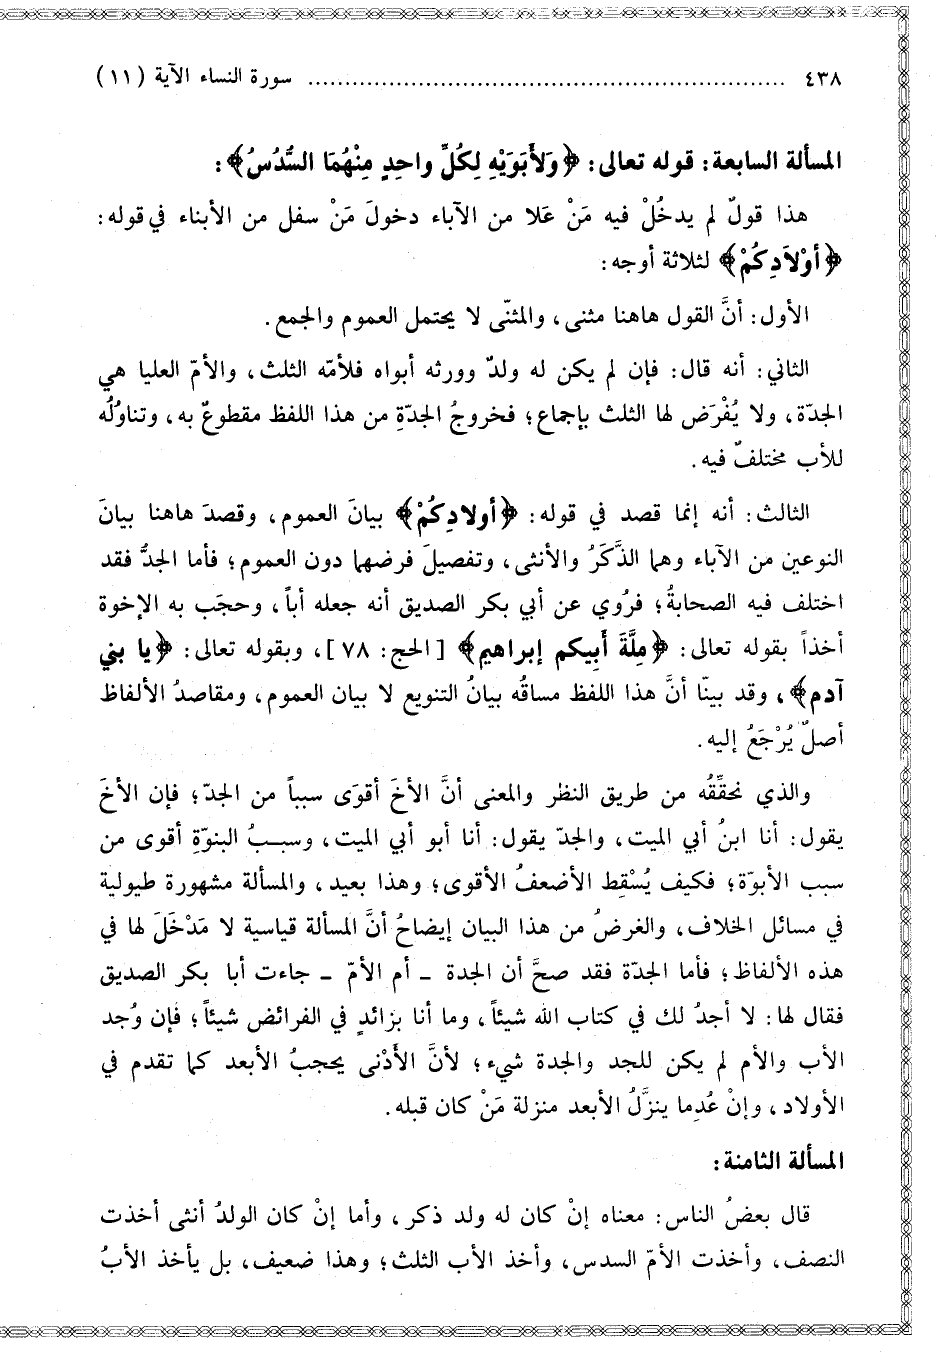 ٤٣٨ ................................................................ سورة النساء الآية (١١)
المسألة السابعة: قوله تعالى: ﴿وَلأَبَوَيْهِ لِكُلِّ واحِدٍ مِنْهُمَا السُّدُسُ﴾:
هذا قولٌ لم يدخُلْ فيه مَنْ عَلا من الآباء دخولَ مَنْ سفل من الأبناء في قوله:
﴿أوْلاَدِكُمْ﴾ لثلاثة أوجه:
الأول: أنَّ القول هاهنا مثنى، والمثنّى لا يحتمل العموم والجمع.
الثاني: أنه قال: فإن لم يكن له ولدٌ وورثه أبواه فلأمّه الثلث، والأمّ العليا هي
الجدّة، ولا يُفْرَض لها الثلث بإجماع؛ فخروجُ الجدّةِ من هذا اللفظ مقطوعٌ به، وتناوُلُه
للأب مختلفٌ فيه.
الثالث: أنه إنما قصد في قوله: ﴿أولادِكُمْ﴾ بيانَ العموم، وقصدَ هاهنا بيانَ
النوعين من الآباء وهما الذَّكَرُ والأنثى، وتفصيلَ فرضهما دون العموم؛ فأما الجدُّ فقد
اختلف فيه الصحابةُ؛ فرُوي عن أبي بكر الصديق أنه جعله أباً، وحجَب به الإخوة
أخذاً بقوله تعالى: ﴿مِلَّةَ أَبِيكم إبراهيم﴾ [الحج: ٧٨]، وبقوله تعالى: ﴿يا بني
آدم﴾، وقد بينّا أنَّ هذا اللفظ مساقُه بيانُ التنويع لا بيان العموم، ومقاصدُ الألفاظ
أصلٌ يُرْجَعُ إليه.
والذي نحقِّقُه من طريق النظر والمعنى أنَّ الأخَ أقوَى سبباً من الجدّ؛ فإن الأخَ
يقول: أنا ابنُ أبي الميت، والجدّ يقول: أنا أبو أبي الميت، وسببُ البنوّةِ أقوى من
سبب الأبوّة؛ فكيف يُسْقِط الأضعفُ الأقوى؛ وهذا بعيد، والمسألة مشهورة طيولية
في مسائل الخلاف، والغرضُ من هذا البيان إيضاحُ أنَّ المسألة قياسية لا مَدْخَلَ لها في
هذه الألفاظ؛ فأما الجدّة فقد صحَّ أن الجدة ـ أم الأمّ ـ جاءت أبا بكر الصديق
فقال لها: لا أجدُ لك في كتاب الله شيئاً، وما أنا بزائدٍ في الفرائض شيئاً؛ فإن وُجد
الأب والأم لم يكن للجد والجدة شيء؛ لأنَّ الأَدْنى يحجبُ الأبعد كما تقدم في
الأولاد، وإنْ عُدِما ينزَّلُ الأبعد منزلة مَنْ كان قبله.
المسألة الثامنة:
قال بعضُ الناس: معناه إنْ كان له ولد ذكر، وأما إنْ كان الولدُ أنثى أخذت
النصف، وأخذت الأمّ السدس، وأخذ الأب الثلث؛ وهذا ضعيف، بل يأخذ الأبُ